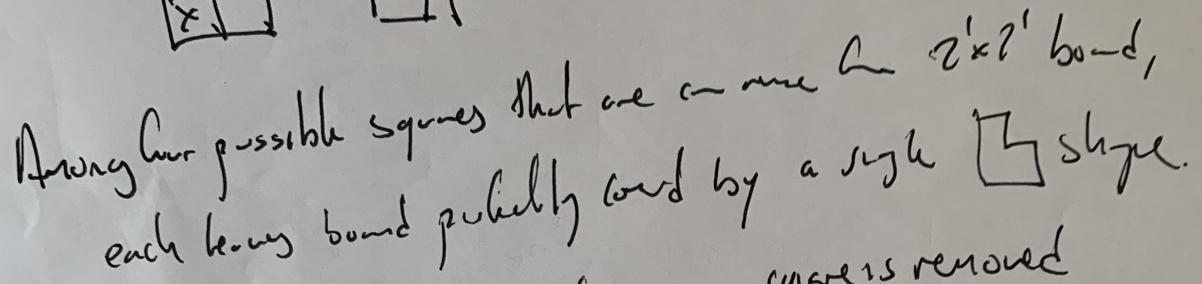 x
Among four possible squares that one can remove from 2¹x2¹ board,
each leaves board perfectly covered by a single shape.
square is removed